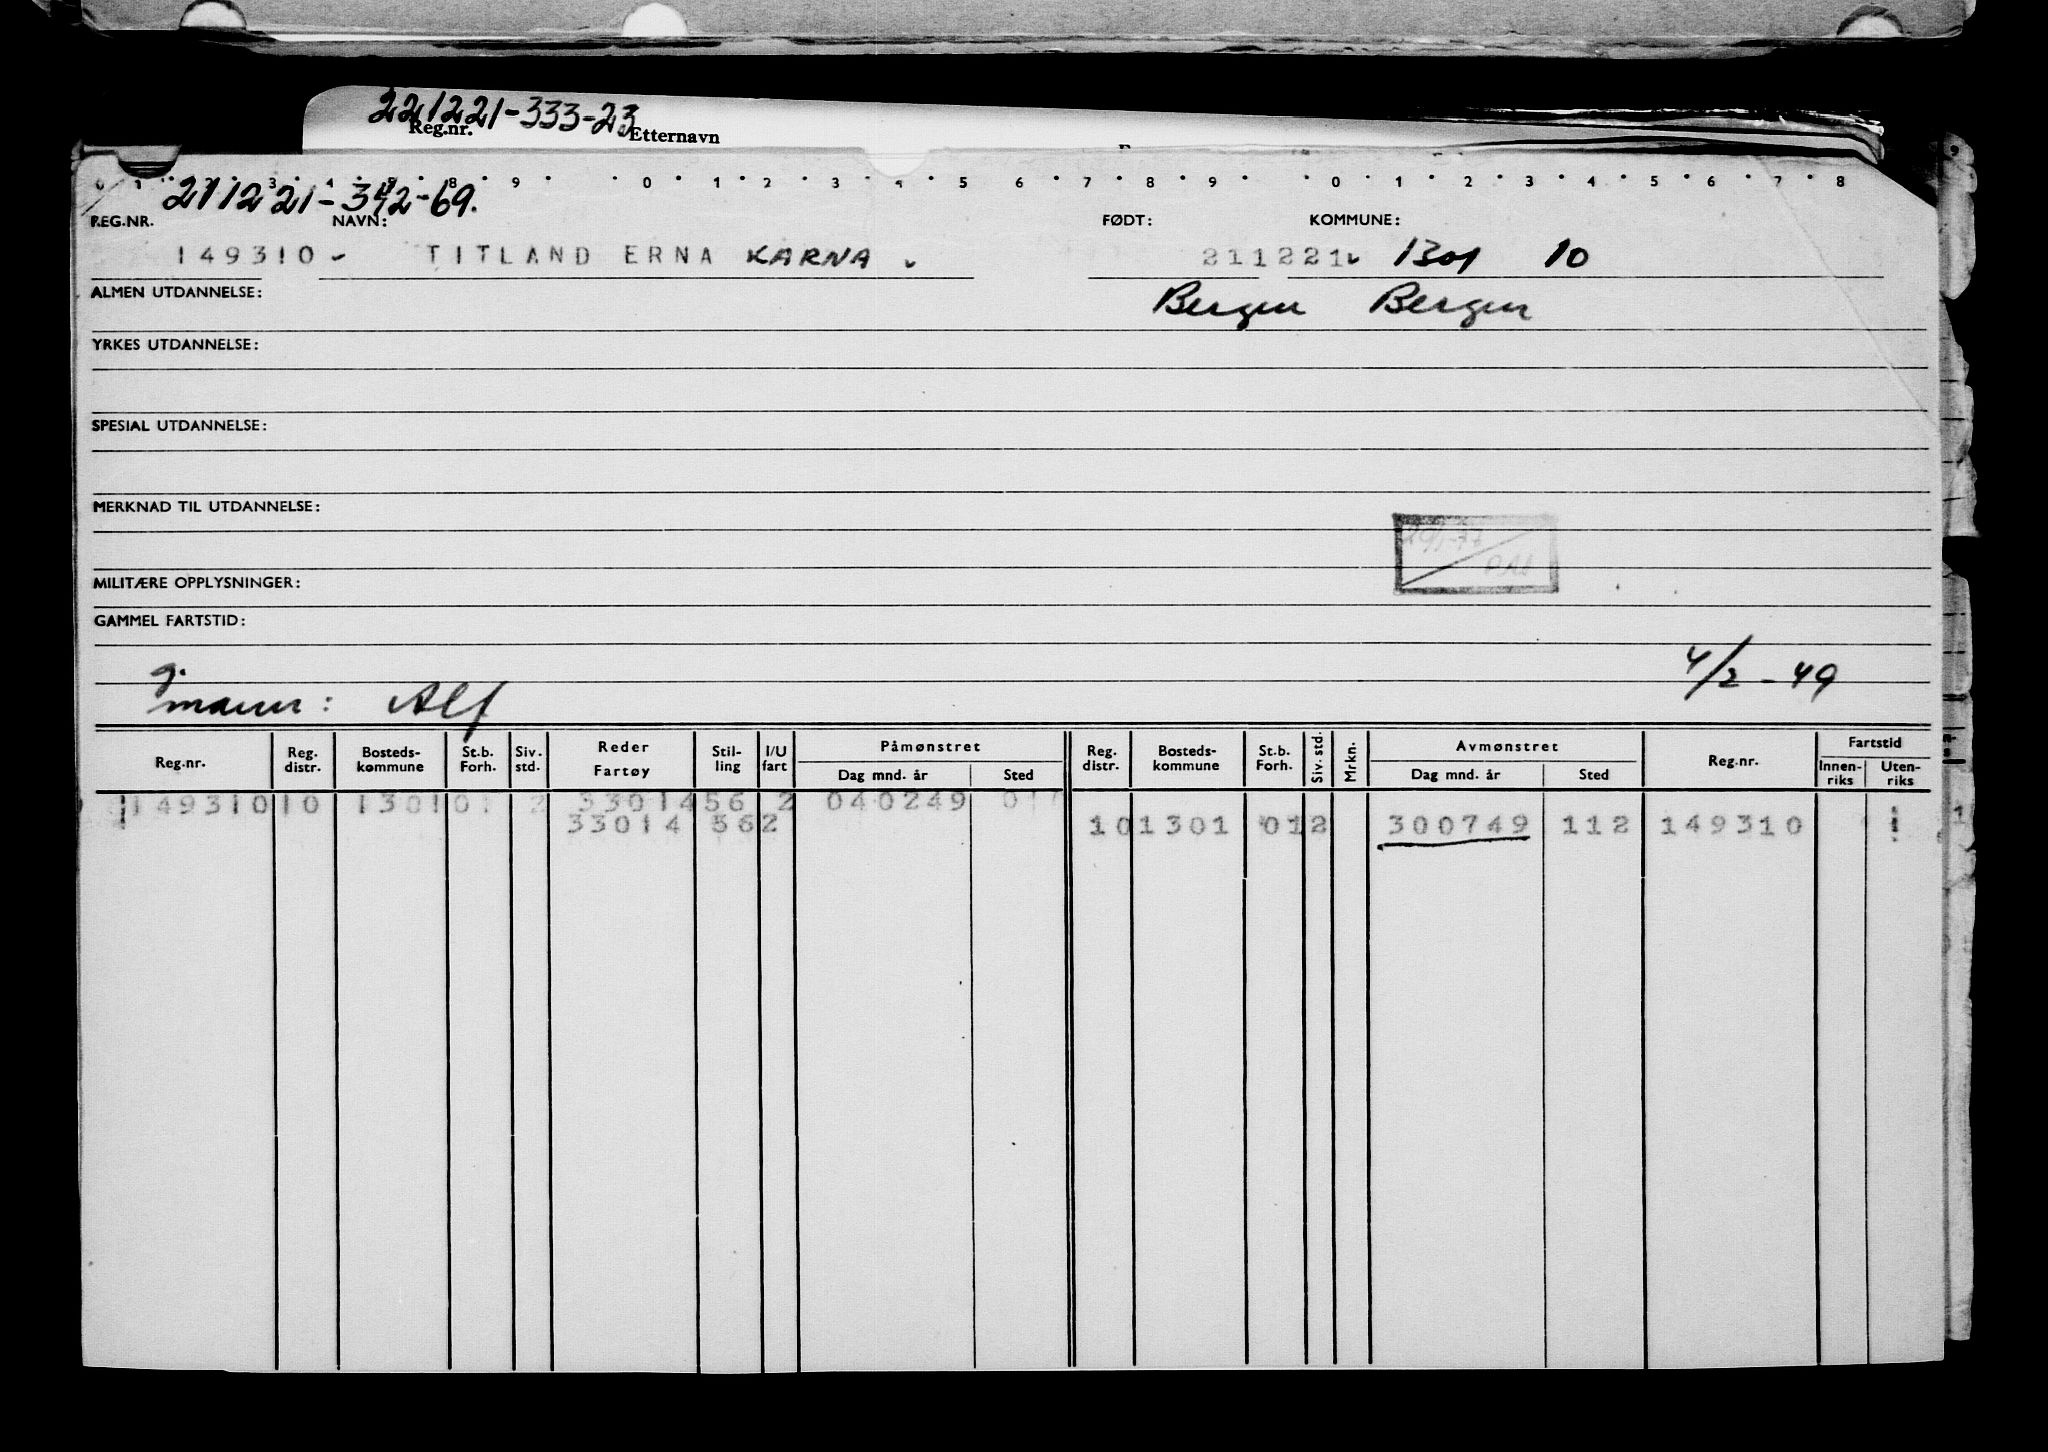 221221-333-23
Reg.nr. Etternavn
1 2 3 4 8 9 0 1 2 3 4 5 6 7 8 9 0 1 2 3 4 5 6 7 8
211221-342-69.
REG.NR. NAVN: FØDT: KOMMUNE:
149310 TITLAND ERNA KARNA 211221 1301 10
ALMEN UTDANNELSE: Bergen Bergen
YRKES UTDANNELSE:
SPESIAL UTDANNELSE:
MERKNAD TIL UTDANNELSE:
MILITÆRE OPPLYSNINGER:
GAMMEL FARTSTID:
g. 4/2-49
mann: Alf
Reg.nr. Reg. distr. Bosteds-kommune St.b. Forh. Siv. std. Reder Fartøy Stil-ling I/U fart Påmønstret Dag mnd. år Sted Reg. distr. Bosteds-kommune St.b. Forh. Siv. std. Mrkn. Avmønstret Dag mnd. år Sted Reg.nr. Fartstid Innen-riks Uten-riks
149310 10 1301 01 2 33014 56 2 040249
33014 56 2 10 1301 01 2 300749 112 149310